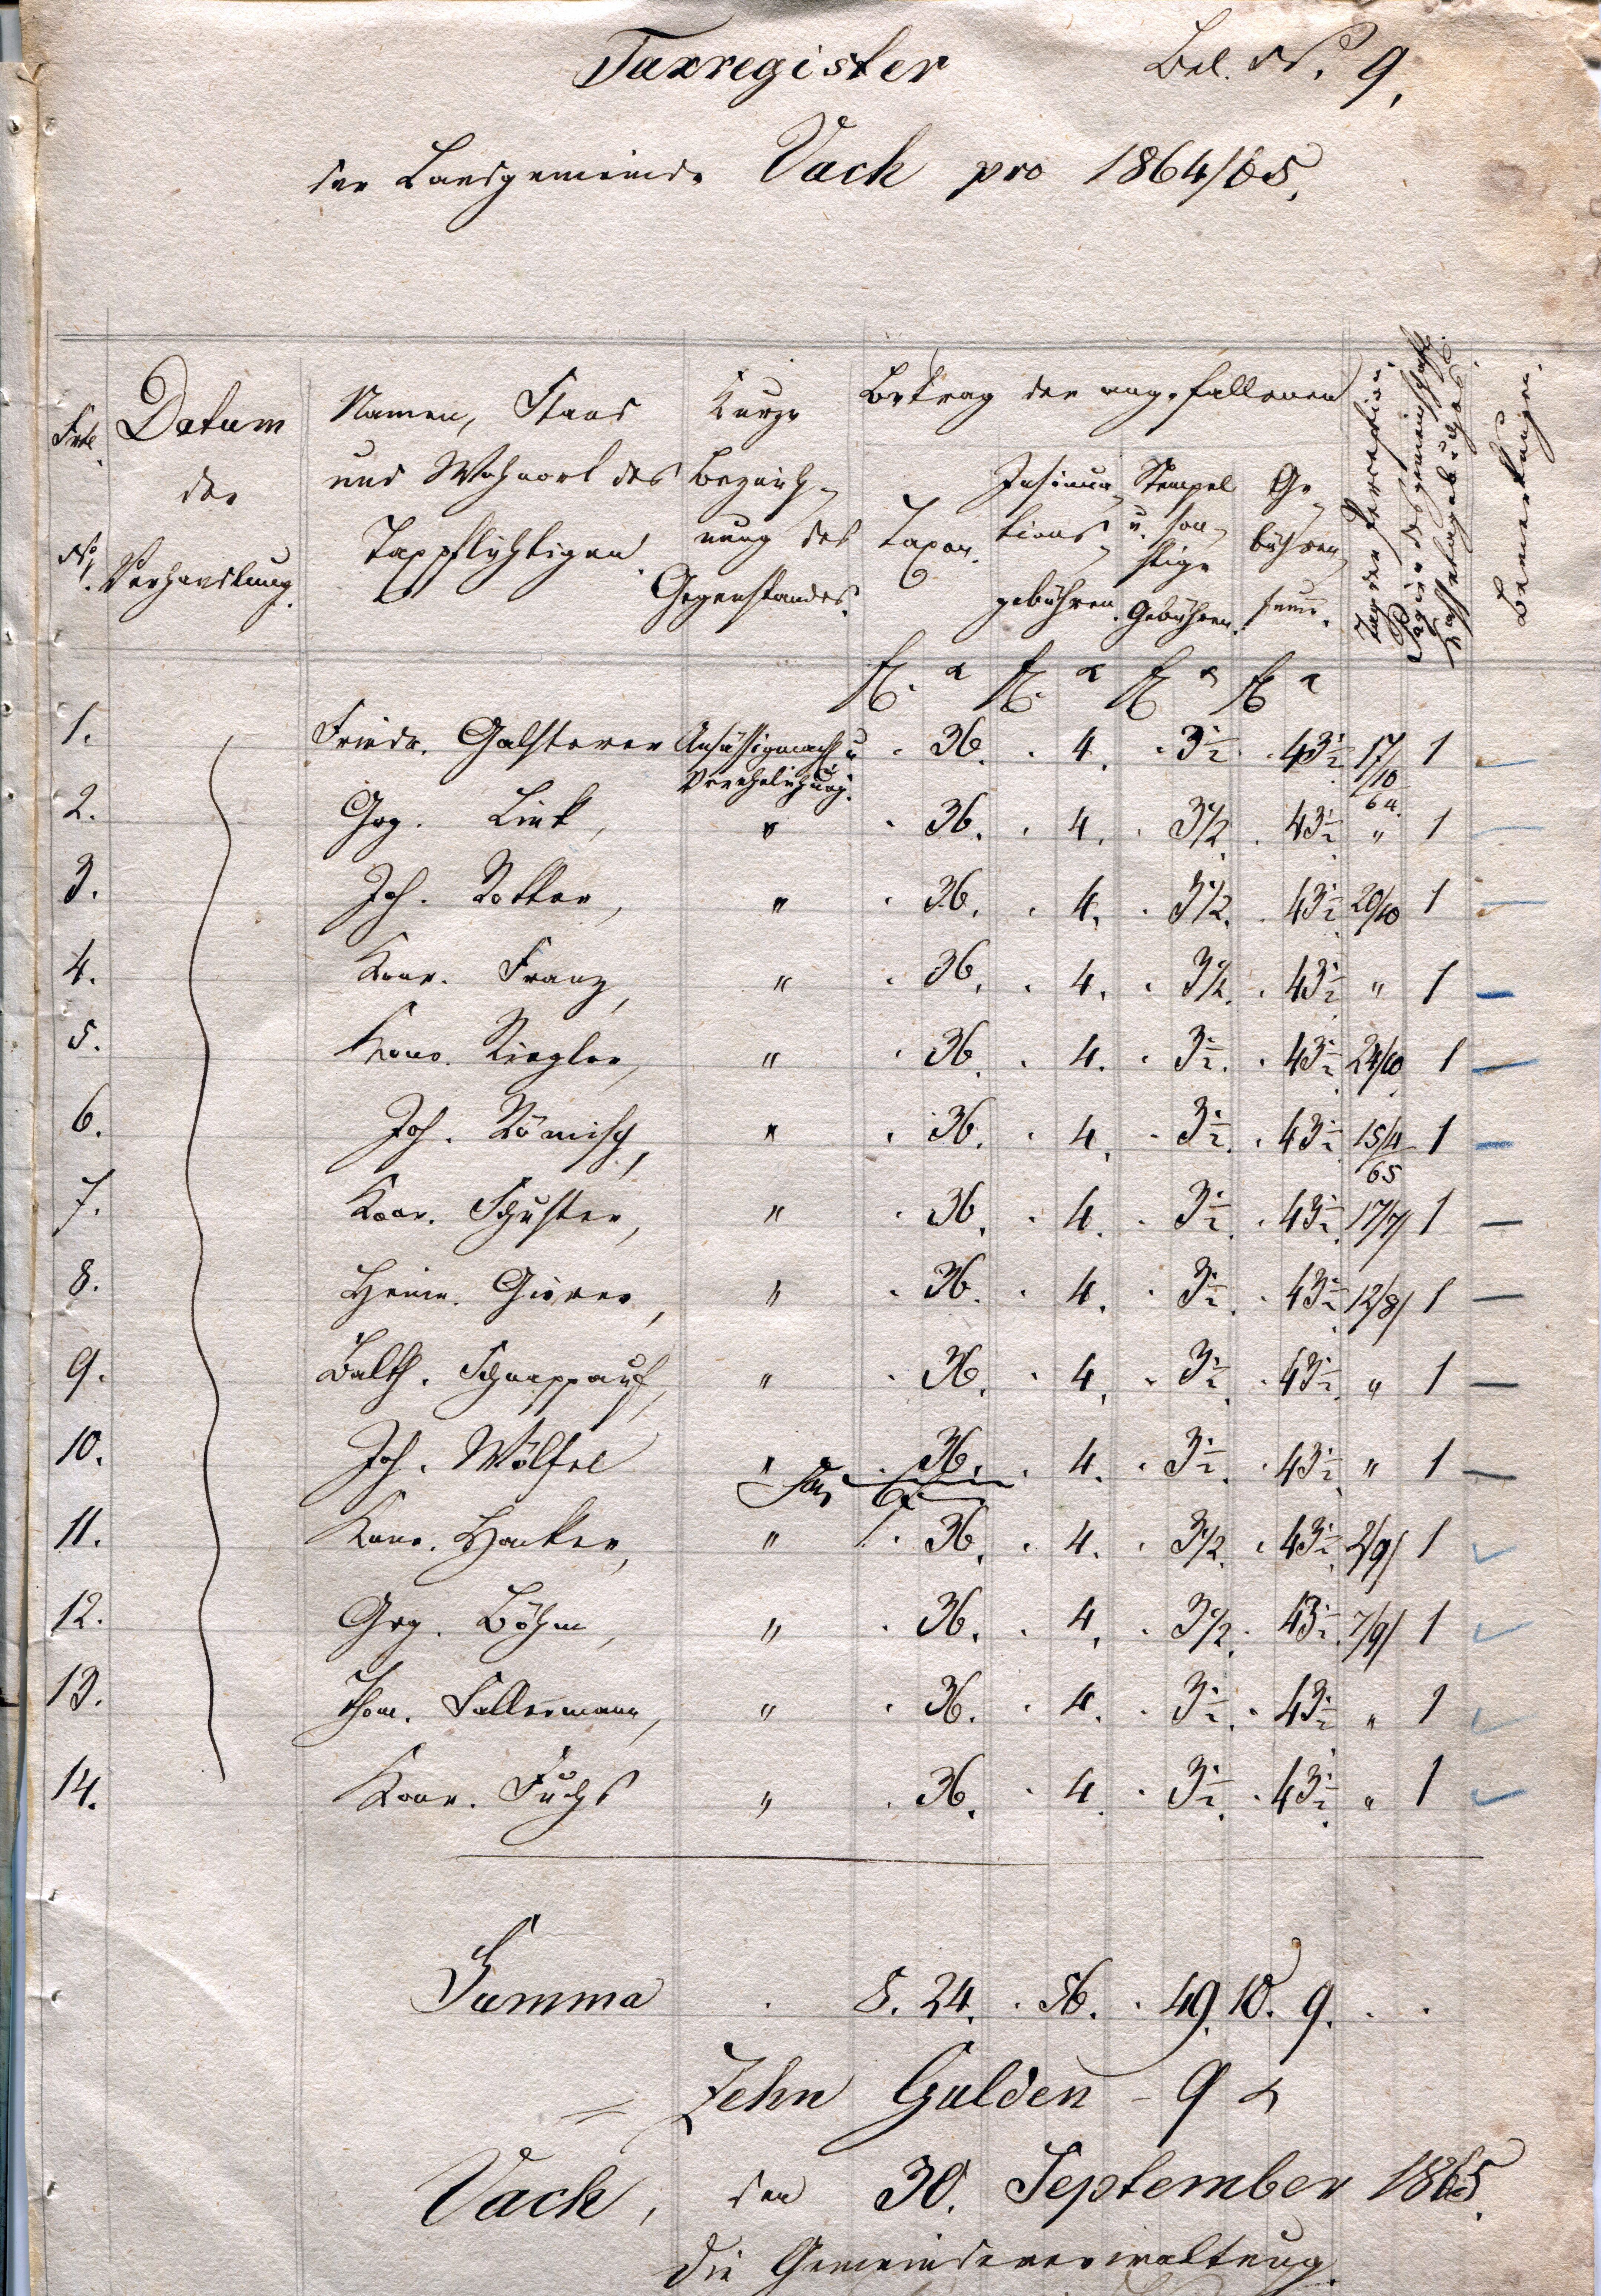 Taxregister Bel. No. 9.
der Landgemeinde Vach pro 1864/65.
Frtl. No. Datum der Verhandlung. Namen, Stand und Wohnort des Taxpflichtigen. Kurze Bezeich- nung des Gegenstandes. Betrag der angefallenen Taxen. Insinua- tions- gebühren. Stempel u. son- stige Gebühren. Ge- bühren Summe. Tag der Bemerkungen.
fl. x fl. x fl. x fl. x
1. Friedr. Galsterer Ansässigmach. u. Verehelichung. . 36. . 4. . 3½. . 43½. 17/10 64. 1
2. Grg. Link, " . 36. . 4. . 3½. . 43½. " 1
3. Joh. Rotter, " . 36. . 4. . 3½. . 43½. 20/10 1
4. Konr. Franz, " . 36. . 4. . 3½. . 43½. " 1
5. Konr. Riegler, " . 36. . 4. . 3½. . 43½. 24/10 1
6. Joh. Römisch, " . 36. . 4. . 3½. . 43½. 15/4 65 1
7. Konr. Schuster, " . 36. . 4. . 3½. . 43½. 17/7 1 —
8. Heinr. " . 36. . 4. . 3½. . 43½. 12/8 1 —
9. Balth. Schnappauf, " . 36. . 4. . 3½. . 43½. " 1 —
10. Joh. Wölfel " . 36. . 4. . 3½. . 43½. " 1 —
11. Konr. Hacker, " . 36. . 4. . 3½. . 43½. 2/9 1
12. Grg. Böhm, " . 36. . 4. . 3½. . 43½. 7/9 1
13. Thom. Fallermann, " . 36. . 4. . 3½. . 43½. " 1
14. Konr. Fuchs " . 36. . 4. . 3½. . 43½. " 1
Summa . 8. 24. . 56. . 49. 10. 9. . .
= Zehn Gulden - 9 x
Vach, den 30. September 1865.
Die Gemeindeverwaltung.